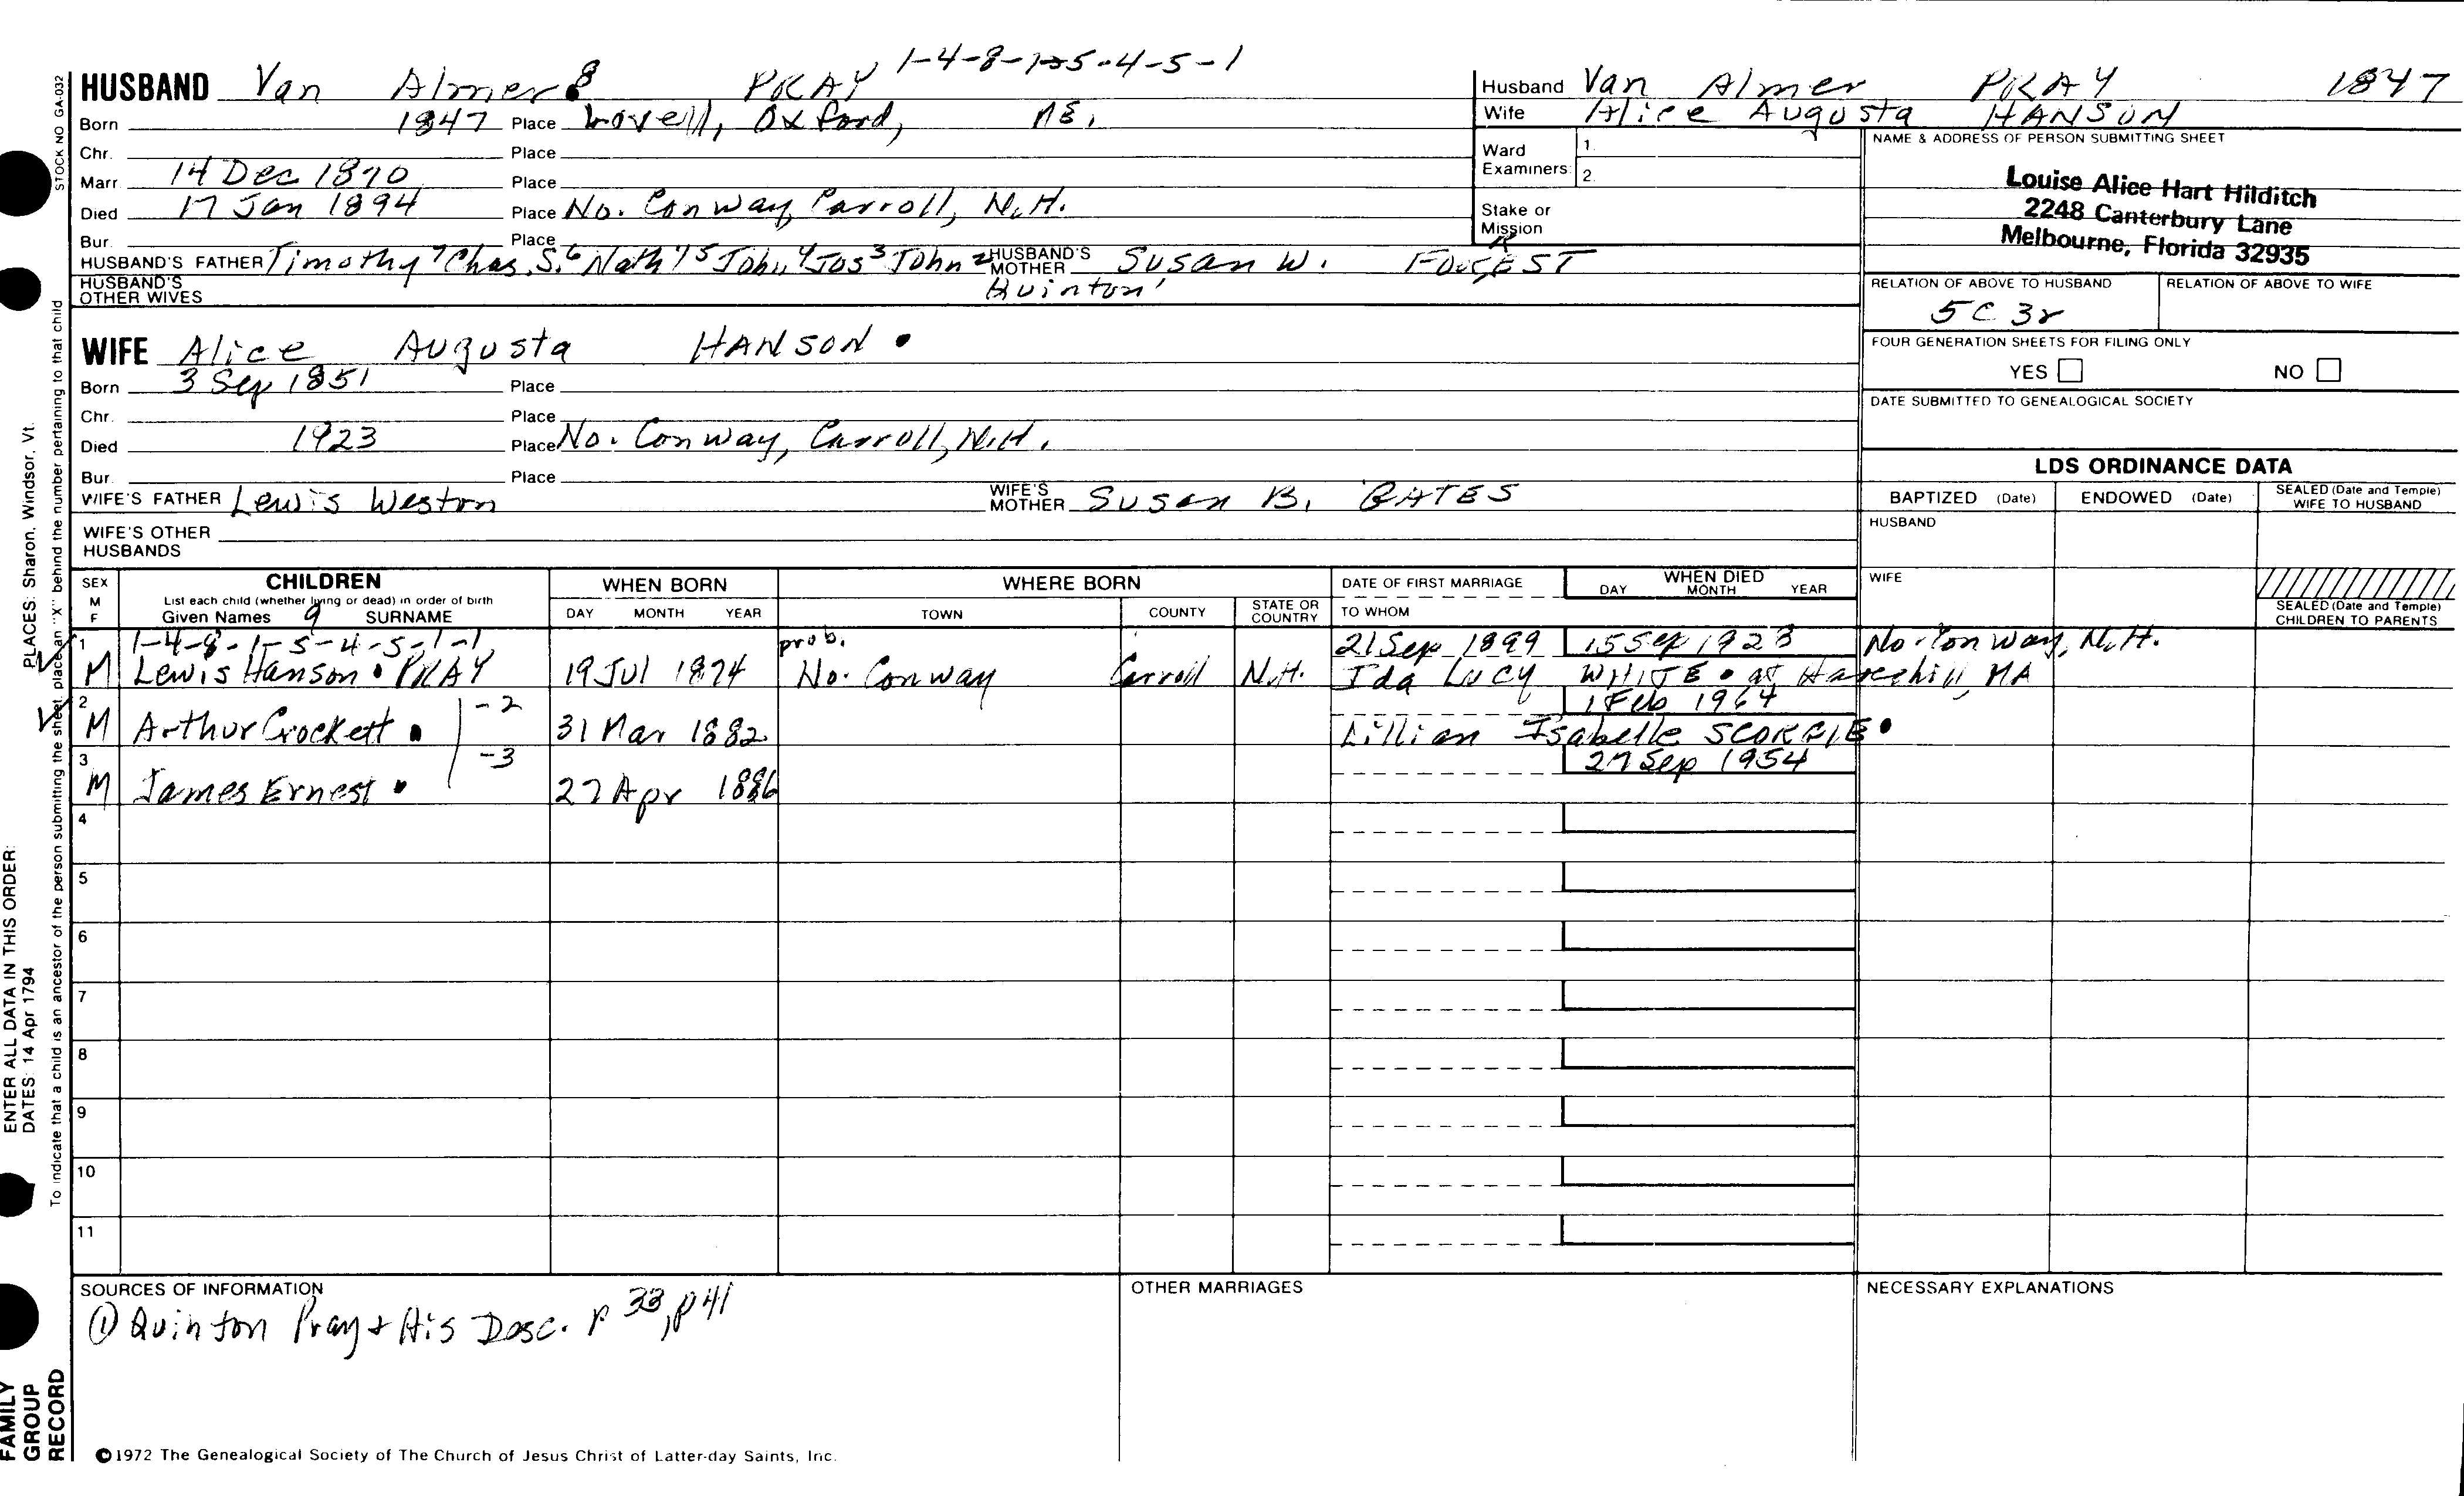 1-4-8-1-5-4-5-1
HUSBAND Van Almer 8 PRAY
Born 1847 Place Lovell, Oxford, ME.
Chr. Place
Marr. 14 Dec 1870 Place
Died 17 Jan 1894 Place No. Conway, Carroll, N.H.
Bur. Place
HUSBAND'S FATHER Timothy 7 Chas. S. 6 Nath'l 5 John 4 Jos 3 John 2 Quinton 1 HUSBAND'S MOTHER Susan W. FORREST
HUSBAND'S OTHER WIVES
WIFE Alice Augusta HANSON
Born 3 Sep 1851 Place
Chr. Place
Died 1923 Place No. Conway, Carroll, N.H.
Bur. Place
WIFE'S FATHER Lewis Weston WIFE'S MOTHER Susan B. BATES
WIFE'S OTHER HUSBANDS
Husband Van Almer PRAY 1847
Wife Alice Augusta HANSON
Ward Examiners: 1. 2.
Stake or Mission
NAME & ADDRESS OF PERSON SUBMITTING SHEET
Louise Alice Hart Hilditch
2248 Canterbury Lane
Melbourne, Florida 32935
RELATION OF ABOVE TO HUSBAND RELATION OF ABOVE TO WIFE
5C 3r
FOUR GENERATION SHEETS FOR FILING ONLY
YES NO
DATE SUBMITTED TO GENEALOGICAL SOCIETY
LDS ORDINANCE DATA
BAPTIZED (Date) ENDOWED (Date) SEALED (Date and Temple) WIFE TO HUSBAND
HUSBAND
WIFE
SEALED (Date and Temple) CHILDREN TO PARENTS
SEX M F
CHILDREN
List each child (whether living or dead) in order of birth
Given Names 9 SURNAME
WHEN BORN DAY MONTH YEAR
WHERE BORN TOWN COUNTY STATE OR COUNTRY
DATE OF FIRST MARRIAGE TO WHOM
WHEN DIED DAY MONTH YEAR
1 1-4-8-1-5-4-5-1-1 prob. 21 Sep 1899 15 Sep 1928 No. Conway, N.H.
M Lewis Hanson PRAY 19 Jul 1874 No. Conway Carroll N.H. Ida Lucy WHITE at Haverhill, MA
2 -2 1 Feb 1964
M Arthur Crockett 31 Mar 1882 Lillian Isabelle
3 -3 27 Sep 1954
M James Ernest 27 Apr 1886
4
5
6
7
8
9
10
11
SOURCES OF INFORMATION
① Quinton Pray & His Desc. p 33, p 41
OTHER MARRIAGES
NECESSARY EXPLANATIONS
©1972 The Genealogical Society of The Church of Jesus Christ of Latter-day Saints, Inc.
STOCK NO GA-032
To indicate that a child is an ancestor of the person submitting the sheet, place an "X" behind the number pertaining to that child
PLACES: Sharon, Windsor, Vt.
ENTER ALL DATA IN THIS ORDER:
DATES: 14 Apr 1794
FAMILY
GROUP
RECORD